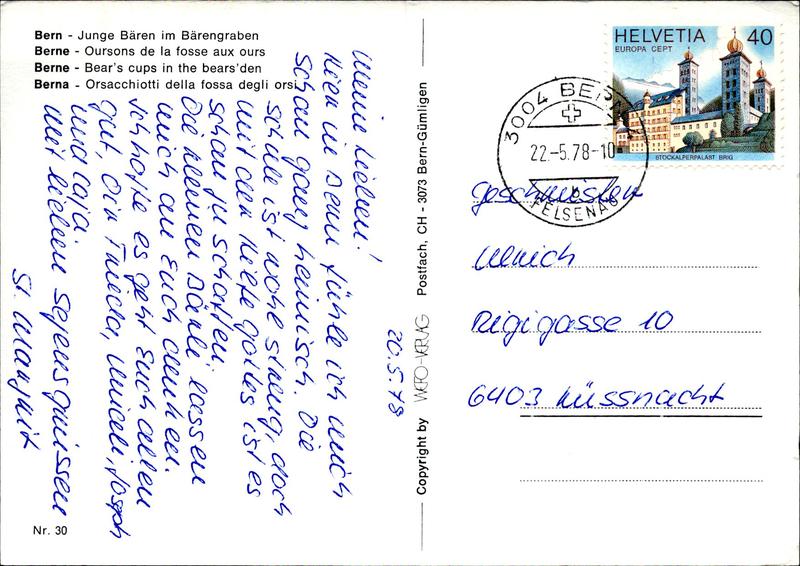 Bern - Junge Bären im Bärengraben
Berne - Oursons de la fosse aux ours
Berne - Bear's cups in the bears'den
Berna - Orsacchiotti della fossa degli orsi
Meine Lieben!
Hier in Bern fühle ich mich
schon ganz heimisch. Die
Schule ist wohl streng, doch
mit der Hilfe Gottes ist es
schon zu schaffen.
Die kleinen Bärli lassen
mich an Euch denken.
Ich hoffe es geht Euch allen
gut, Dir Frieda, Josef
und
Mit lieben Segensgrüssen
Sr. Margrit
20.5.78
Nr. 30
Copyright by WERO-VERLAG Postfach, CH - 3073 Bern-Gümligen
HELVETIA 40
EUROPA CEPT
STOCKALPERPALAST BRIG
3004 BERN
22.-5.78-10
FELSENAU
Geschwister
Ulrich
Rigigasse 10
6403 Küssnacht